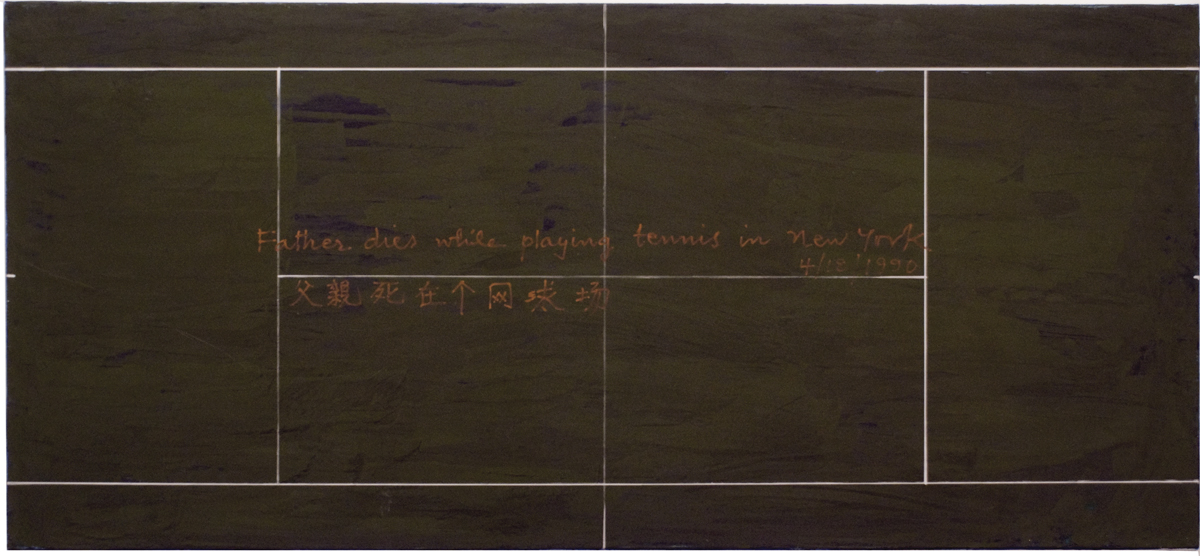 Father dies while playing tennis in New York.
4/12/1990
父親死在个网球场